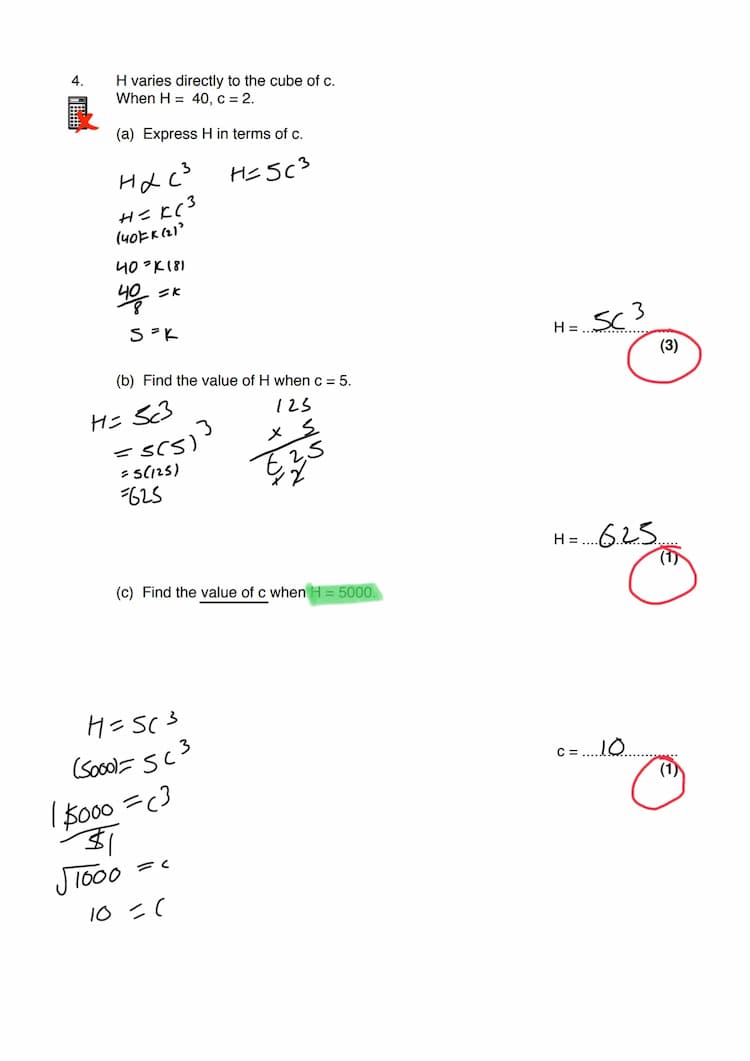 4. H varies directly to the cube of c.
When H = 40, c = 2.
(a) Express H in terms of c.
H ∝ C³ H = 5C³
H = KC³
(40) = K(2)³
40 = K(8)
40/8 = K
5 = K
H = ...5C³...
(3)
(b) Find the value of H when c = 5.
H = 5C³
= 5(5)³
= 5(125)
= 625
125
x 5
625
H = ....625.....
(1)
(c) Find the value of c when H = 5000.
H = 5C³
(5000) = 5C³
5000/5 = C³
√1000 = C
10 = C
c = ....10..............
(1)